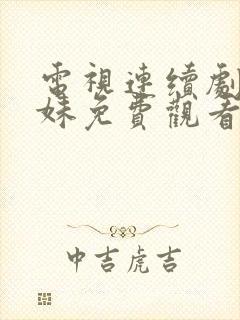 電視連續劇
妹免費觀看
中吉虎吉